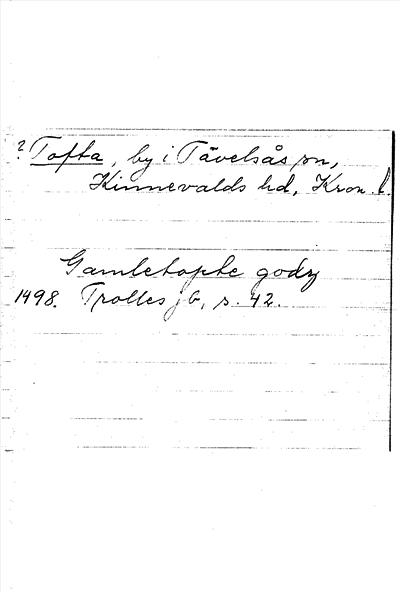 ? Tofta, by i Tävelsås sn,
Kinnevalds hd, Kron. l.
Gamletopte godz
1498. Trolles jb, s. 42.